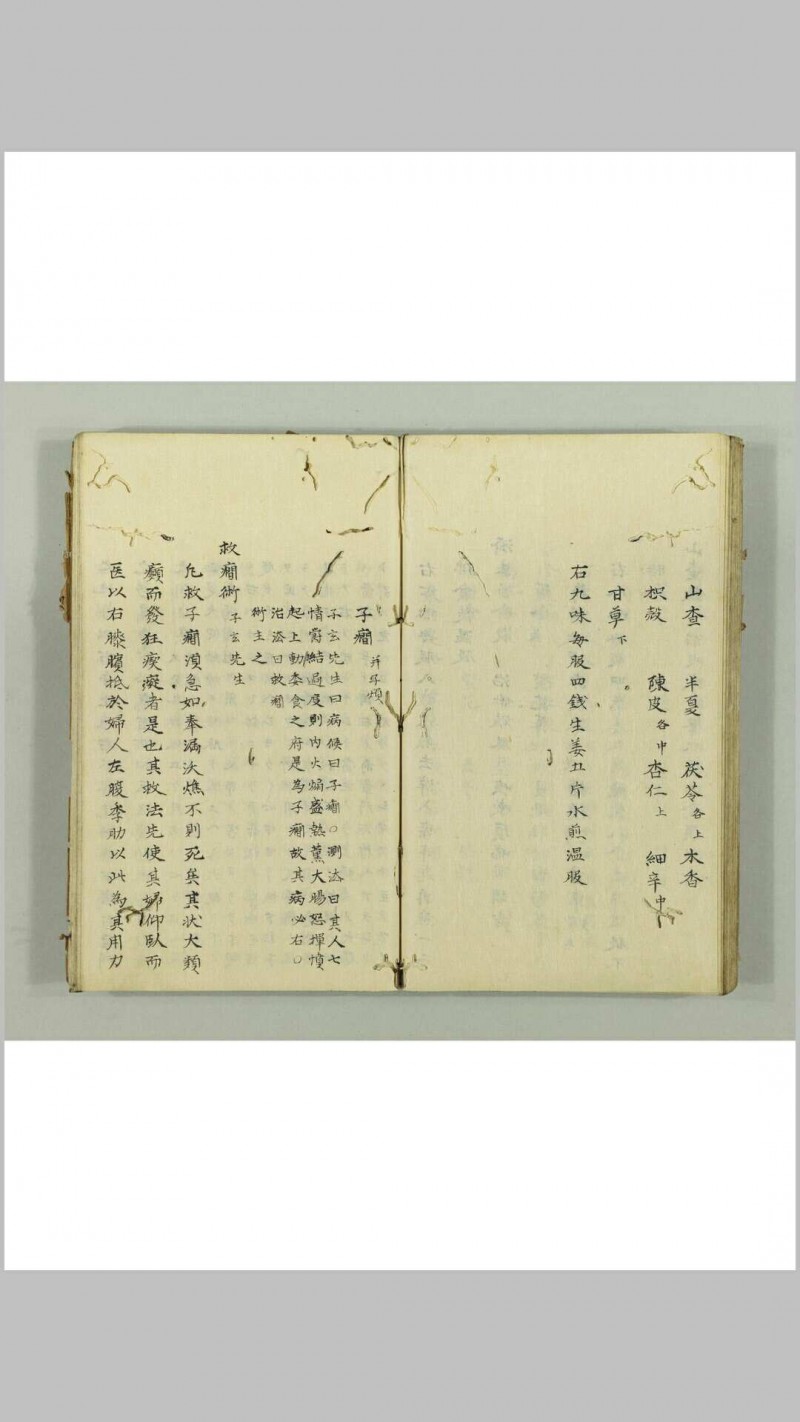 山查 半夏 茯苓各上 木香
枳殻 陳皮各中 杏仁上 細辛中
甘草下
右九味每服四錢生姜五片水煎温服
子癇 并子煩
子玄先生曰病候曰子癇〇測法曰其人七
情欝結過度則內火熖盛熱薫大腸怒墠憤
起上動委食之府是為子癇故其病必右〇
治法曰救癇
術主之
救癇術 子玄先生
凢救子癇湏急如奉漏沃燋不則死矣其状大類
癲而發狂癡者是也其救法先使其婦仰臥而
医以右膝臏抵於婦人左腹季肋以此為其用力